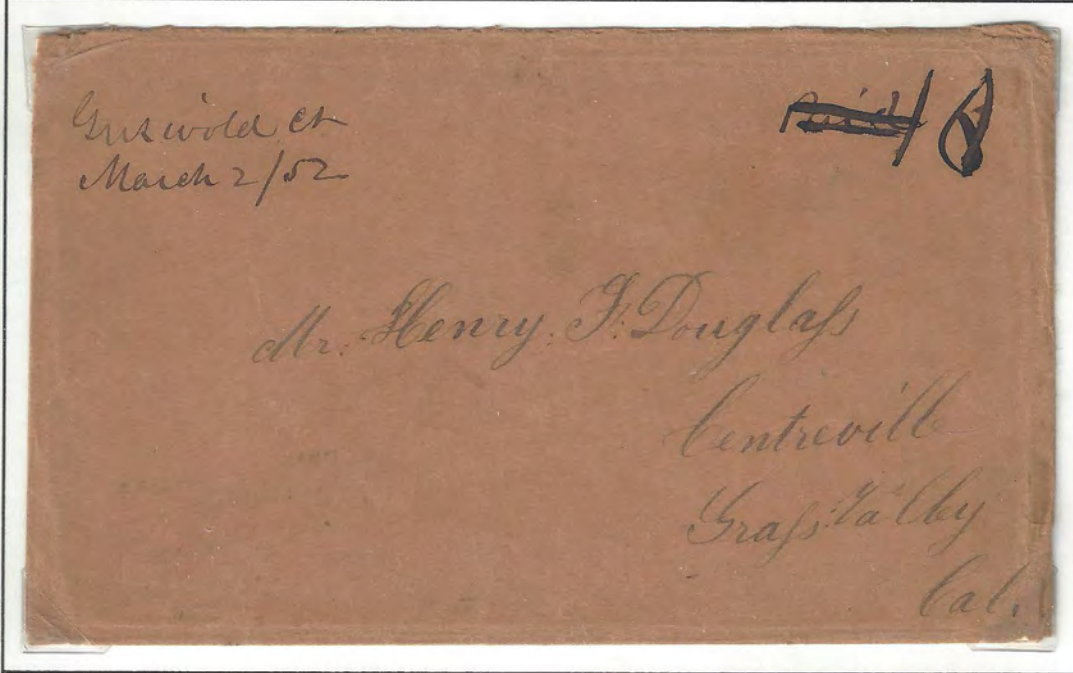 Griswold Ct
March 2/52
Paid
Mr. Henry. F. Douglaſs
Centreville
Graſs Valley
Cal.